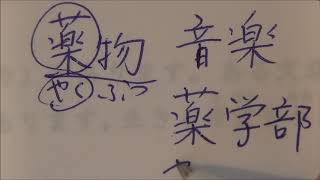 薬物
やくぶつ
音楽
薬学部